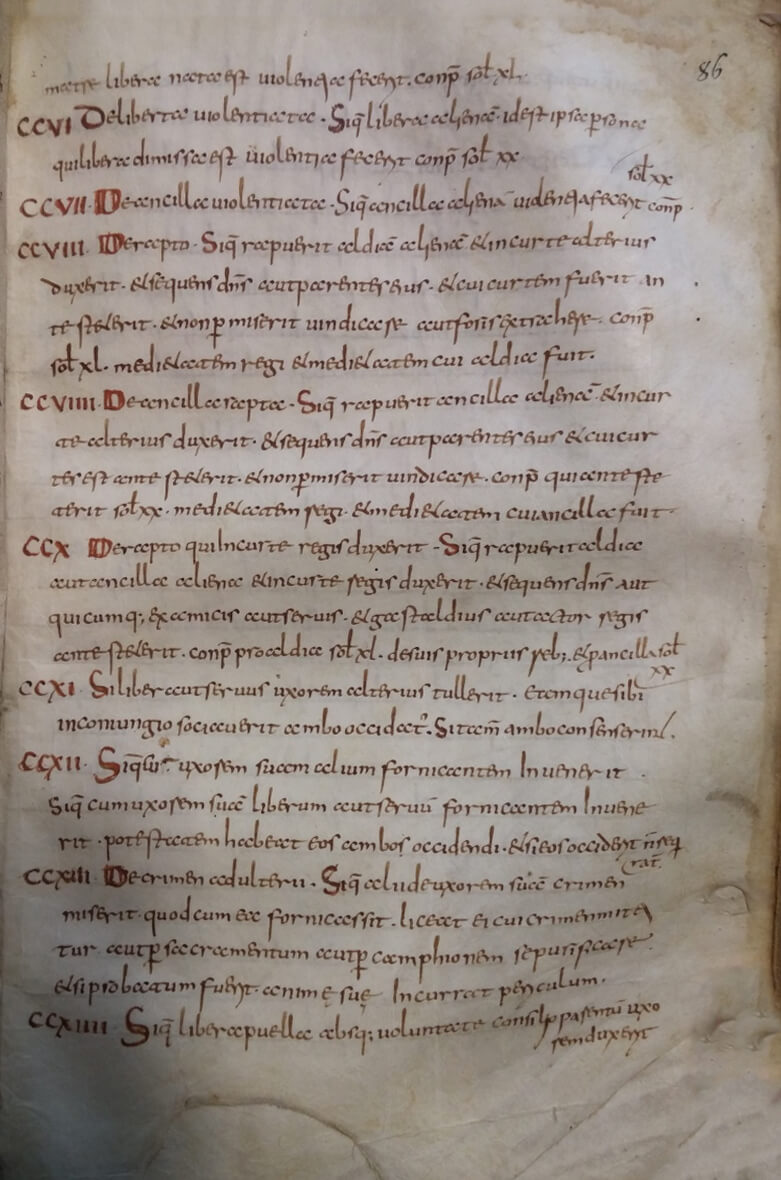 86
matre libera nata est uiolentia fecerit. conp̄ sol̄ xl.
CCVI De liberta uiolentiata. Siq̄ libera aliena. id est ipsa p̱sona
qui libera dimissa est uiolentia fecerit conp̄ sol̄ xx
CCVII. De ancilla uiolentiata. Siq̄ ancilla aliena uiolentia fecerit conp̄
sol̄ xx
CCVIII. De rapto. Siq̄ rapuerit aldia aliena et in curte alterius
duxerit. et sequens dn̄s aut parentes eius. et cui curtem fuerit an
testeterit. et non p̱miserit uindicare aut foris extrahere. conp̄
sol̄ xl. medietatem regi et medietatem cui aldia fuit.
CCVIIII. De ancilla rapta. Siq̄ rapuerit ancilla aliena et in cur
te alterius duxerit. et sequens dn̄s aut parentes eius et cui cur
tes est ante steterit. et non p̱miserit uindicare. conp̄ qui ante ste
terit sol̄ xx. medietatem regi. et medietatem cui ancilla fuit.
CCX De rapto qui in curte regis duxerit. Siq̄ rapuerit aldia
aut ancilla aliena et in curte regis duxerit. et sequens dn̄s aut
quicumq; ex amicis aut seruis. et gastaldius aut actor regis
ante steterit. conp̄ pro aldia sol̄ xl. de suis propriis reb; et p̱ ancilla sol̄
xx
CCXI. Si liber aut seruus uxorem alterius tullerit. eamque sibi
in coniungio sociauerit ambo occidat̄. Si tam̄ ambo consenserint.
CCXII. uxorem suam alium fornicantem Inuenerit.
Siq̄ cum uxorem suā liberum aut seruū fornicantem Inuene
rit. potestatem habeat eos ambos occidendi. et si eos occiderit n̄ req̱
rat̄.
CCXIII. De crimen adulterii. Siq̄ alii de uxorem suā crimen
miserit. quod cum ea fornicassit. liceat ei cui crimen mitti
tur aut p̱ sacramentum aut p̱ camphionem se purificare.
et si probatum fuerit. animę suę Incurrat periculum.
CCXIIII. Siq̄ libera puella absq; uoluntate parentū uxo
rem duxerit